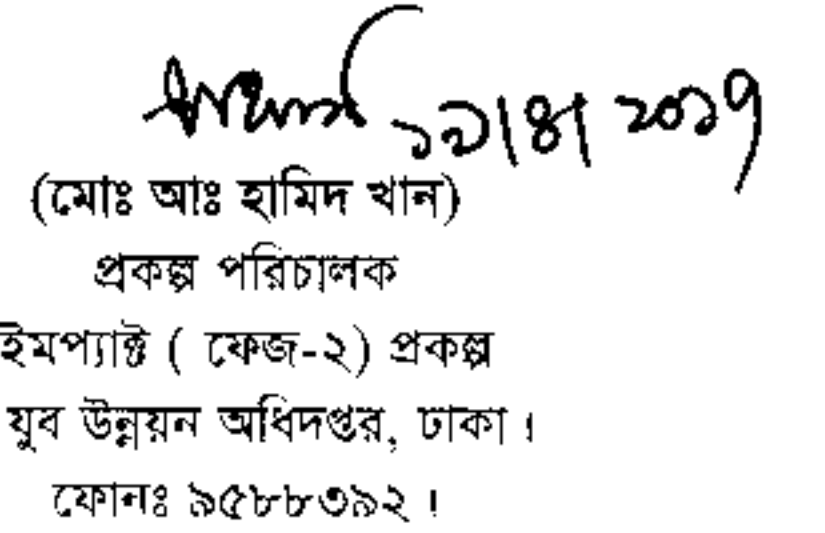 ১৯/৪/২০১৭
(মোঃ আঃ হামিদ খান)
প্রকল্প পরিচালক
ইমপ্যাক্ট ( ফেজ-২) প্রকল্প
যুব উন্নয়ন অধিদপ্তর, ঢাকা।
ফোনঃ ৯৫৮৮৩৯২।